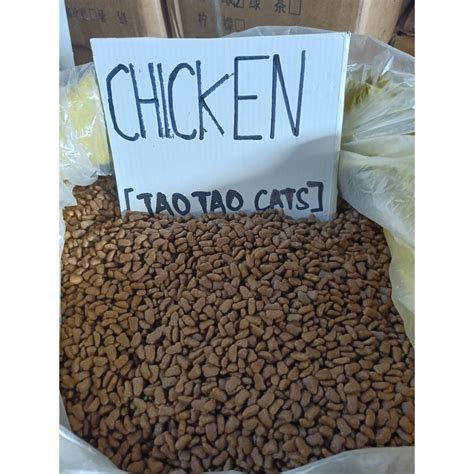 绿茶
CHICKEN
[TAO TAO CATS]